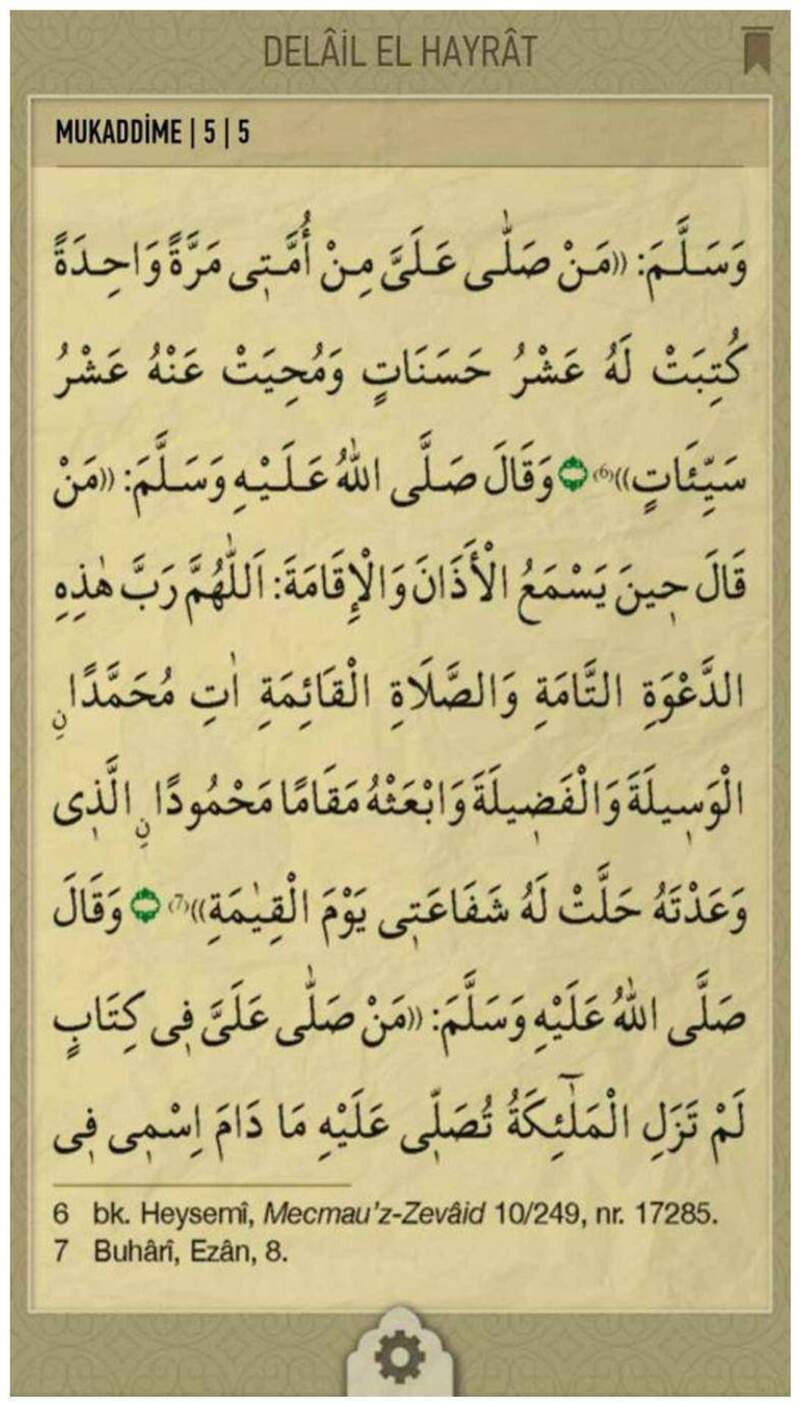 DELÂİL EL HAYRÂT
MUKADDİME | 5 | 5
وَسَلَّمَ: «مَنْ صَلّٰى عَلَىَّ مِنْ أُمَّتٖى مَرَّةً وَاحِدَةً
كُتِبَتْ لَهُ عَشْرُ حَسَنَاتٍ وَمُحِيَتْ عَنْهُ عَشْرُ
سَيِّئَاتٍ»(6) وَقَالَ صَلَّى اللّٰهُ عَلَيْهِ وَسَلَّمَ: «مَنْ
قَالَ حٖينَ يَسْمَعُ الْأَذَانَ وَالْإِقَامَةَ: اَللّٰهُمَّ رَبَّ هٰذِهِ
الدَّعْوَةِ التَّامَةِ وَالصَّلَاةِ الْقَائِمَةِ اٰتِ مُحَمَّدًا نِ
الْوَسٖيلَةَ وَالْفَضٖيلَةَ وَابْعَثْهُ مَقَامًا مَحْمُودًا نِ الَّذٖى
وَعَدْتَهُ حَلَّتْ لَهُ شَفَاعَتٖى يَوْمَ الْقِيٰمَةِ»(7) وَقَالَ
صَلَّى اللّٰهُ عَلَيْهِ وَسَلَّمَ: «مَنْ صَلّٰى عَلَىَّ فٖى كِتَابٍ
لَمْ تَزَلِ الْمَلٰٓئِكَةُ تُصَلّٖى عَلَيْهِ مَا دَامَ اِسْمٖى فٖى
6 bk. Heysemî, Mecmau'z-Zevâid 10/249, nr. 17285.
7 Buhârî, Ezân, 8.